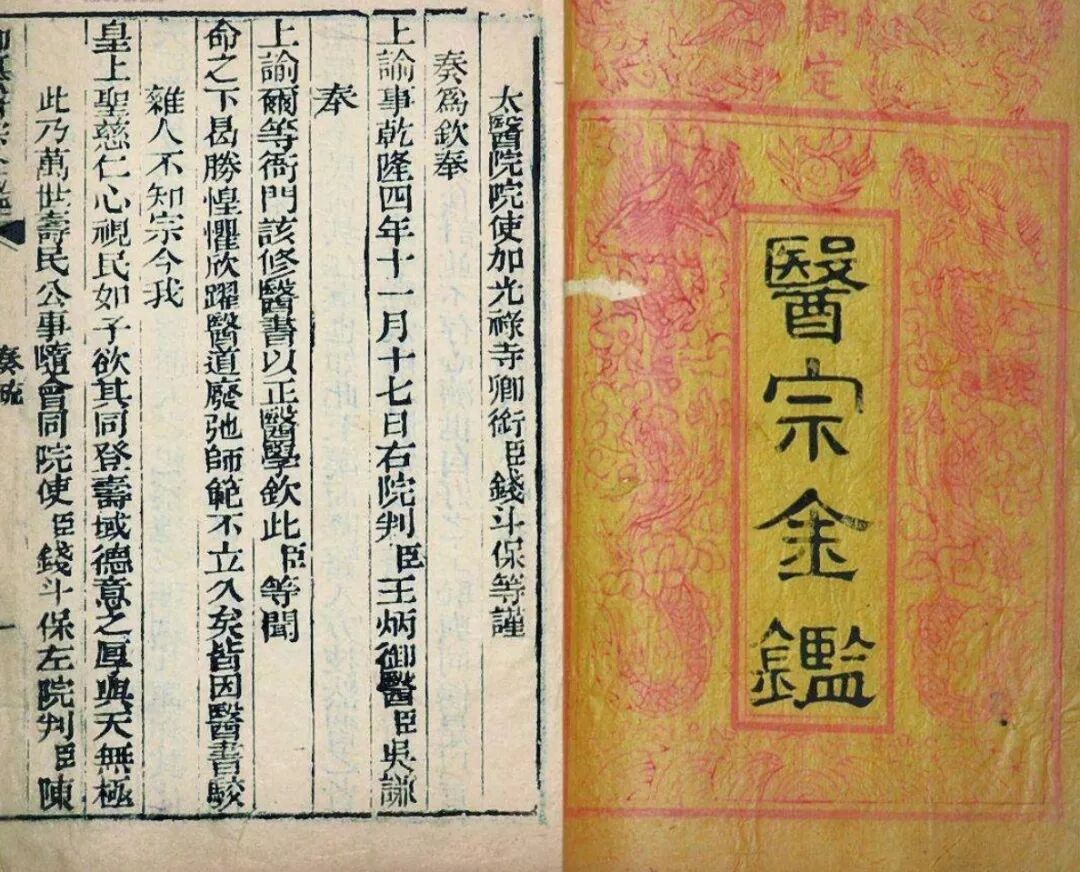 御定
醫宗金鑑
太醫院院使加光祿寺卿銜臣錢斗保等謹
奏爲欽奉
上諭事乾隆四年十一月十七日右院判臣王炳御醫臣吳謙
奉
上諭爾等衙門該修醫書以正醫學欽此臣等聞
命之下曷勝惶懼欣躍醫道廢弛師範不立久矣皆因醫書駁
雜人不知宗今我
皇上聖慈仁心視民如子欲其同登壽域德意之厚與天無極
此乃萬世壽民公事隨會同院使臣錢斗保左院判臣陳
奏疏